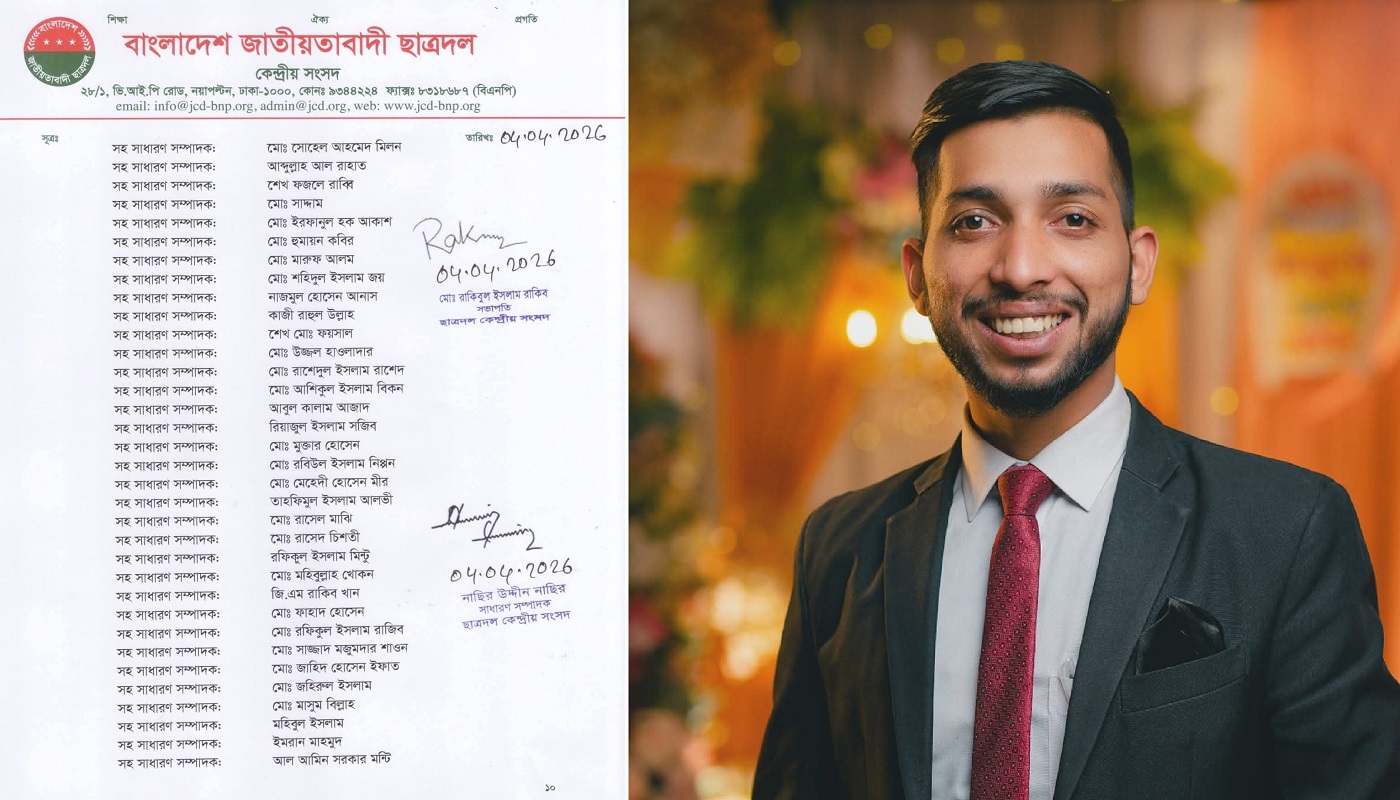 শিক্ষা ঐক্য প্রগতি
বাংলাদেশ জাতীয়তাবাদী ছাত্রদল
জাতীয়তাবাদী ছাত্রদল
বাংলাদেশ জাতীয়তাবাদী ছাত্রদল
কেন্দ্রীয় সংসদ
২৮/১, ভি.আই.পি রোড, নয়াপল্টন, ঢাকা-১০০০, ফোনঃ ৯৩৪৪২২৪ ফ্যাক্সঃ ৮৩১৮৬৮৭ (বিএনপি)
email: info@jcd-bnp.org, admin@jcd.org, web: www.jcd-bnp.org
সূত্রঃ তারিখঃ 04.04.2026
সহ সাধারণ সম্পাদক: মোঃ সোহেল আহমেদ মিলন
সহ সাধারণ সম্পাদক: আব্দুল্লাহ আল রাহাত
সহ সাধারণ সম্পাদক: শেখ ফজলে রাব্বি
সহ সাধারণ সম্পাদক: মোঃ সাদ্দাম
সহ সাধারণ সম্পাদক: মোঃ ইরফানুল হক আকাশ
সহ সাধারণ সম্পাদক: মোঃ হুমায়ন কবির
সহ সাধারণ সম্পাদক: মোঃ মারুফ আলম
সহ সাধারণ সম্পাদক: মোঃ শহিদুল ইসলাম জয়
সহ সাধারণ সম্পাদক: নাজমুল হোসেন আনাস
সহ সাধারণ সম্পাদক: কাজী রাহুল উল্লাহ
সহ সাধারণ সম্পাদক: শেখ মোঃ ফয়সাল
সহ সাধারণ সম্পাদক: মোঃ উজ্জল হাওলাদার
সহ সাধারণ সম্পাদক: মোঃ রাশেদুল ইসলাম রাশেদ
সহ সাধারণ সম্পাদক: মোঃ আশিকুল ইসলাম বিকন
সহ সাধারণ সম্পাদক: আবুল কালাম আজাদ
সহ সাধারণ সম্পাদক: রিয়াজুল ইসলাম সজিব
সহ সাধারণ সম্পাদক: মোঃ মুক্তার হোসেন
সহ সাধারণ সম্পাদক: মোঃ রবিউল ইসলাম নিপ্পন
সহ সাধারণ সম্পাদক: মোঃ মেহেদী হোসেন মীর
সহ সাধারণ সম্পাদক: তাহফিমুল ইসলাম আলভী
সহ সাধারণ সম্পাদক: মোঃ রাসেল মাঝি
সহ সাধারণ সম্পাদক: মোঃ রাসেদ চিশতী
সহ সাধারণ সম্পাদক: রফিকুল ইসলাম মিন্টু
সহ সাধারণ সম্পাদক: মোঃ মহিবুল্লাহ খোকন
সহ সাধারণ সম্পাদক: জি.এম রাকিব খান
সহ সাধারণ সম্পাদক: মোঃ ফাহাদ হোসেন
সহ সাধারণ সম্পাদক: মোঃ রফিকুল ইসলাম রাজিব
সহ সাধারণ সম্পাদক: মোঃ সাজ্জাদ মজুমদার শাওন
সহ সাধারণ সম্পাদক: মোঃ জাহিদ হোসেন ইফাত
সহ সাধারণ সম্পাদক: মোঃ জহিরুল ইসলাম
সহ সাধারণ সম্পাদক: মোঃ মাসুম বিল্লাহ
সহ সাধারণ সম্পাদক: মহিবুল ইসলাম
সহ সাধারণ সম্পাদক: ইমরান মাহমুদ
সহ সাধারণ সম্পাদক: আল আমিন সরকার মন্টি
04.04.2026
মোঃ রাকিবুল ইসলাম রাকিব
সভাপতি
ছাত্রদল কেন্দ্রীয় সংসদ
04.04.2026
নাছির উদ্দীন নাছির
সাধারণ সম্পাদক
ছাত্রদল কেন্দ্রীয় সংসদ
১০